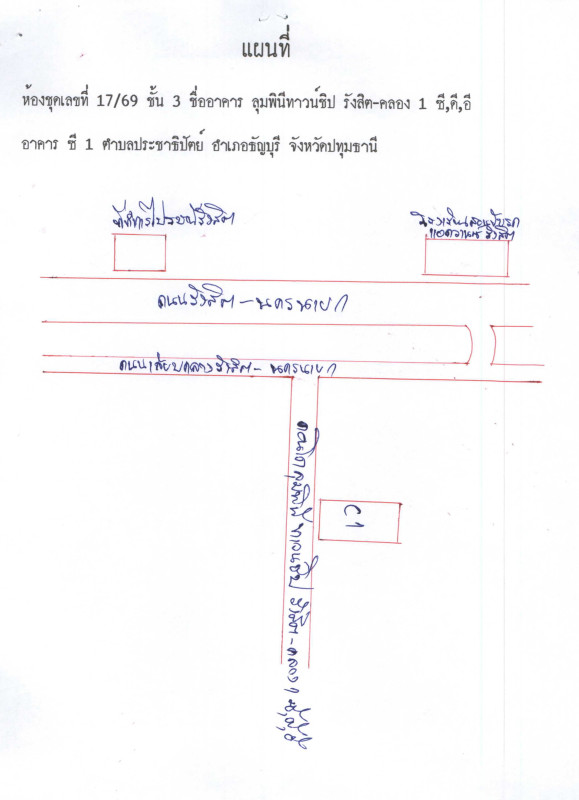 แผนที่
ห้องชุดเลขที่ 17/69 ชั้น 3 ชื่ออาคาร ลุมพินีทาวน์ชิป รังสิต-คลอง 1 ซี,ดี,อี
อาคาร ซี 1 ตำบลประชาธิปัตย์ อำเภอธัญบุรี จังหวัดปทุมธานี
ที่ทำการไปรษณีย์รังสิต
โรงเรียนสอนขับรถ
รังสิต
ถนนรังสิต - นครนายก
ถนนเลียบคลองรังสิต - นครนายก
C1
คอนโดลุมพินี ทาวน์ชิป รังสิต - คลอง 1 ซี,ดี,อี